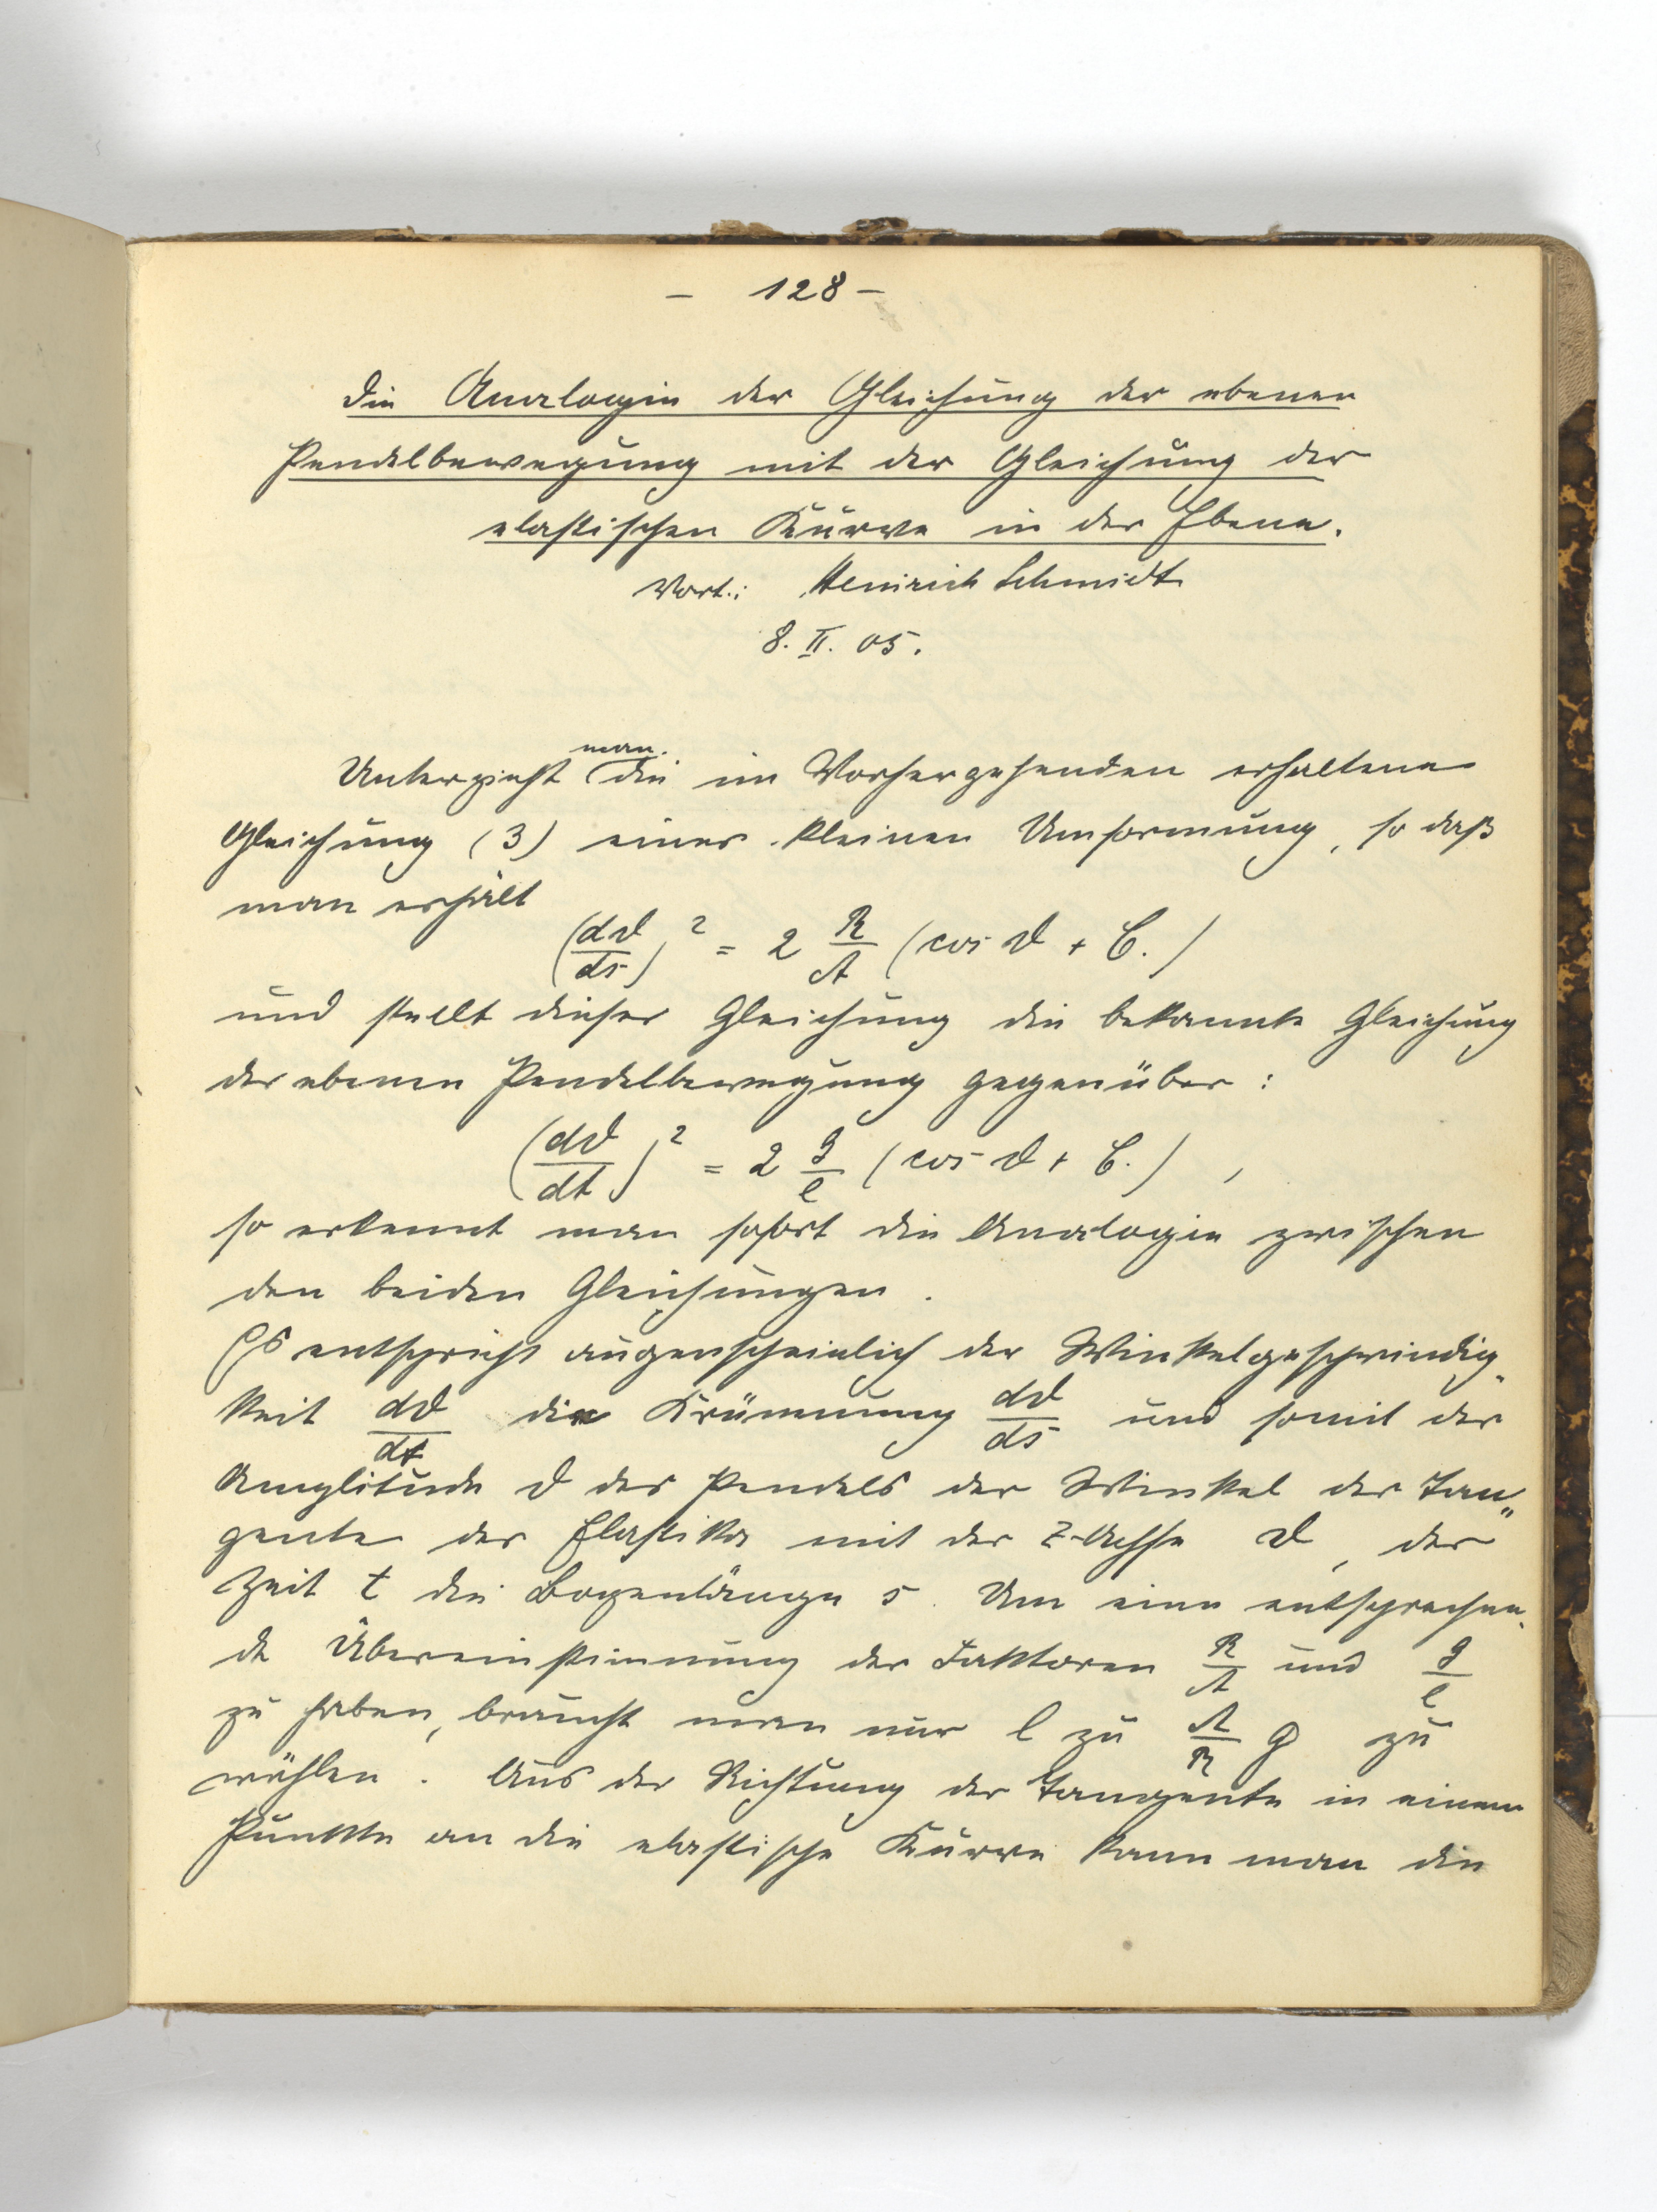 – 128 –
Die Analogie der Gleichung der ebenen
Pendelbewegung mit der Gleichung der
elastischen Kurve in der Ebene.
Vort.: Heinrich Schmidt
8. II. 05.
man
Unterzieht die im Vorhergehenden erhaltene
Gleichung (3) einer kleinen Umformung, so daß
man erhält
(dϑ/ds)² = 2 R/A (cos ϑ + C.)
und stellt dieser Gleichung die bekannte Gleichung
der ebenen Pendelbewegung gegenüber :
(dϑ/dt)² = 2 g/l (cos ϑ + C.) ,
so erkennt man sofort die Analogie zwischen
den beiden Gleichungen .
Es entspricht augenscheinlich der Winkelgeschwindig-
keit dϑ/dt die Krümmung dϑ/ds und somit der
Amplitude ϑ des Pendels der Winkel der Tan-
gente der Elastika mit der z-Achse ϑ, der
Zeit t die Bogenlänge s. Um eine entsprechen-
de Übereinstimmung der Faktoren R/A und g/l
zu haben, braucht man nur l zu A/R g zu
wählen . Aus der Richtung der Tangente in einem
Punkte an die elastische Kurve kann man die